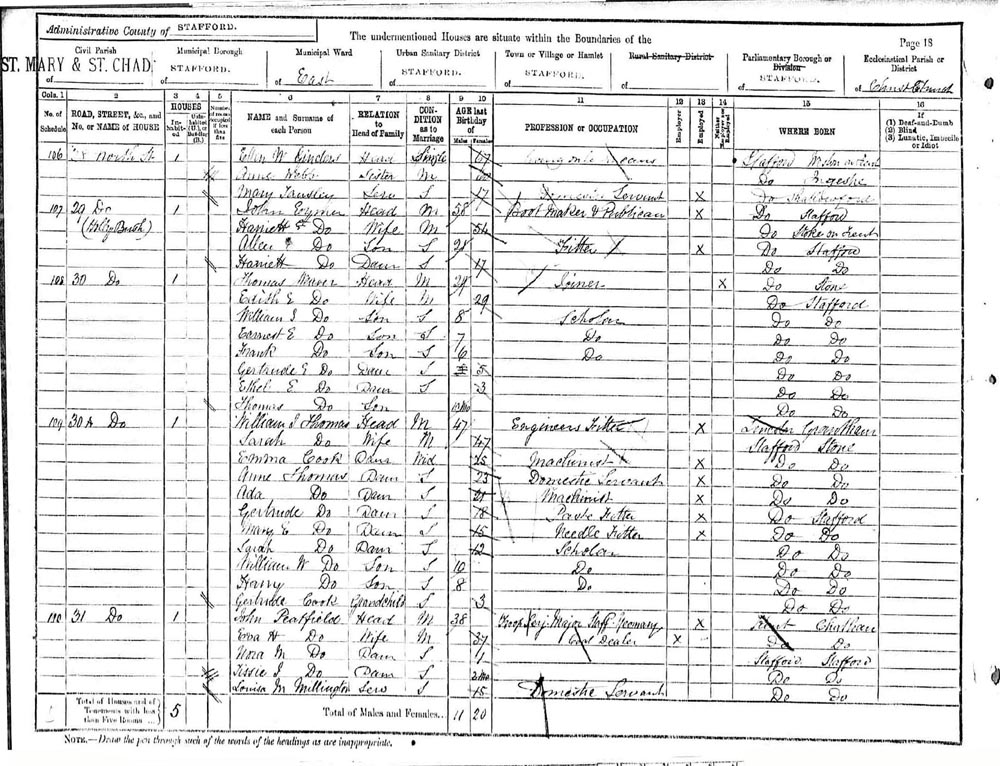 Administrative County of STAFFORD.
The undermentioned Houses are situate within the Boundaries of the
Page 18
Civil Parish
Municipal Borough
Municipal Ward
Urban Sanitary District
Town or Village or Hamlet
Rural Sanitary District
Parliamentary Borough or Division
Ecclesiastical Parish or District
of ST. MARY & ST. CHAD
of STAFFORD.
of East
of STAFFORD.
of STAFFORD.
of
of STAFFORD.
of Christ Church
Cols. 1 2 3 4 5 6 7 8 9 10 11 12 13 14 15 16
No. of Schedule
ROAD, STREET, &c., and No. or NAME of HOUSE
HOUSES
Inhabited
Uninhabited (U.), or Building (B.)
Number of rooms occupied if less than five
NAME and Surname of each Person
RELATION to Head of Family
CONDITION as to Marriage
AGE last Birthday of
Males
Females
PROFESSION or OCCUPATION
Employer
Employed
Neither Employer nor Employed
WHERE BORN
If
(1) Deaf-and-Dumb
(2) Blind
(3) Lunatic, Imbecile or Idiot
106 North St 1 Ellen W Head Single 67 Stafford
Anne Webb Sister M Do
Mary Serv S 17 Domestic Servant X Do
107 29 Do 1 John Head M 58 Boot Maker & Publican X Do Stafford
(Holly Bush) Harriett Do Wife M 54 Do Stoke on Trent
Do Son S 28 Fitter X Do Stafford
Harriett Do Daur S 17 Do Do
108 30 Do 1 Thomas Head M 29 Joiner X Do Stone
Edith E Do Wife M 29 Do Stafford
William J Do Son S 8 Scholar Do Do
Earnest E Do Son S 7 Do Do Do
Frank Do Son S 6 Do Do Do
Gertrude E Do Daur S 5 Do Do
Ethel E Do Daur S 3 Do Do
Thomas Do Son Do Do
109 30A Do 1 William J Thomas Head M 47 Engineers Fitter X Lincoln Grantham
Sarah Do Wife M 47 Stafford Stone
Emma Cook Daur Wid 25 Machinist X Do Do
Anne Thomas Daur S 23 Domestic Servant X Do Do
Ada Do Daur S 21 Machinist X Do Do
Gertrude Do Daur S 18 Paste Fitter X Do Stafford
Mary E Do Daur S 15 Needle Fitter X Do Do
Sarah Do Daur S 12 Scholar Do Do
William W Do Son S 10 Do Do Do
Harry Do Son S 8 Do Do Do
Gertrude Cook Grandchild S 3 Do Do
110 31 Do 1 John Head M 38 Troop Serj Major Staff Yeomanry X Kent Chatham
Eva H Do Wife M 37 Dealer X Do Do
Nora M Do Daur S 1 Stafford Stafford
Do Daur S 2 Mo Do Do
Louisa M Millington Serv S 15 Domestic Servant Do Do
Total of Houses and of Tenements with less than Five Rooms ... 5
Total of Males and Females... 11 20
NOTE.—Draw the pen through such of the words of the headings as are inappropriate.